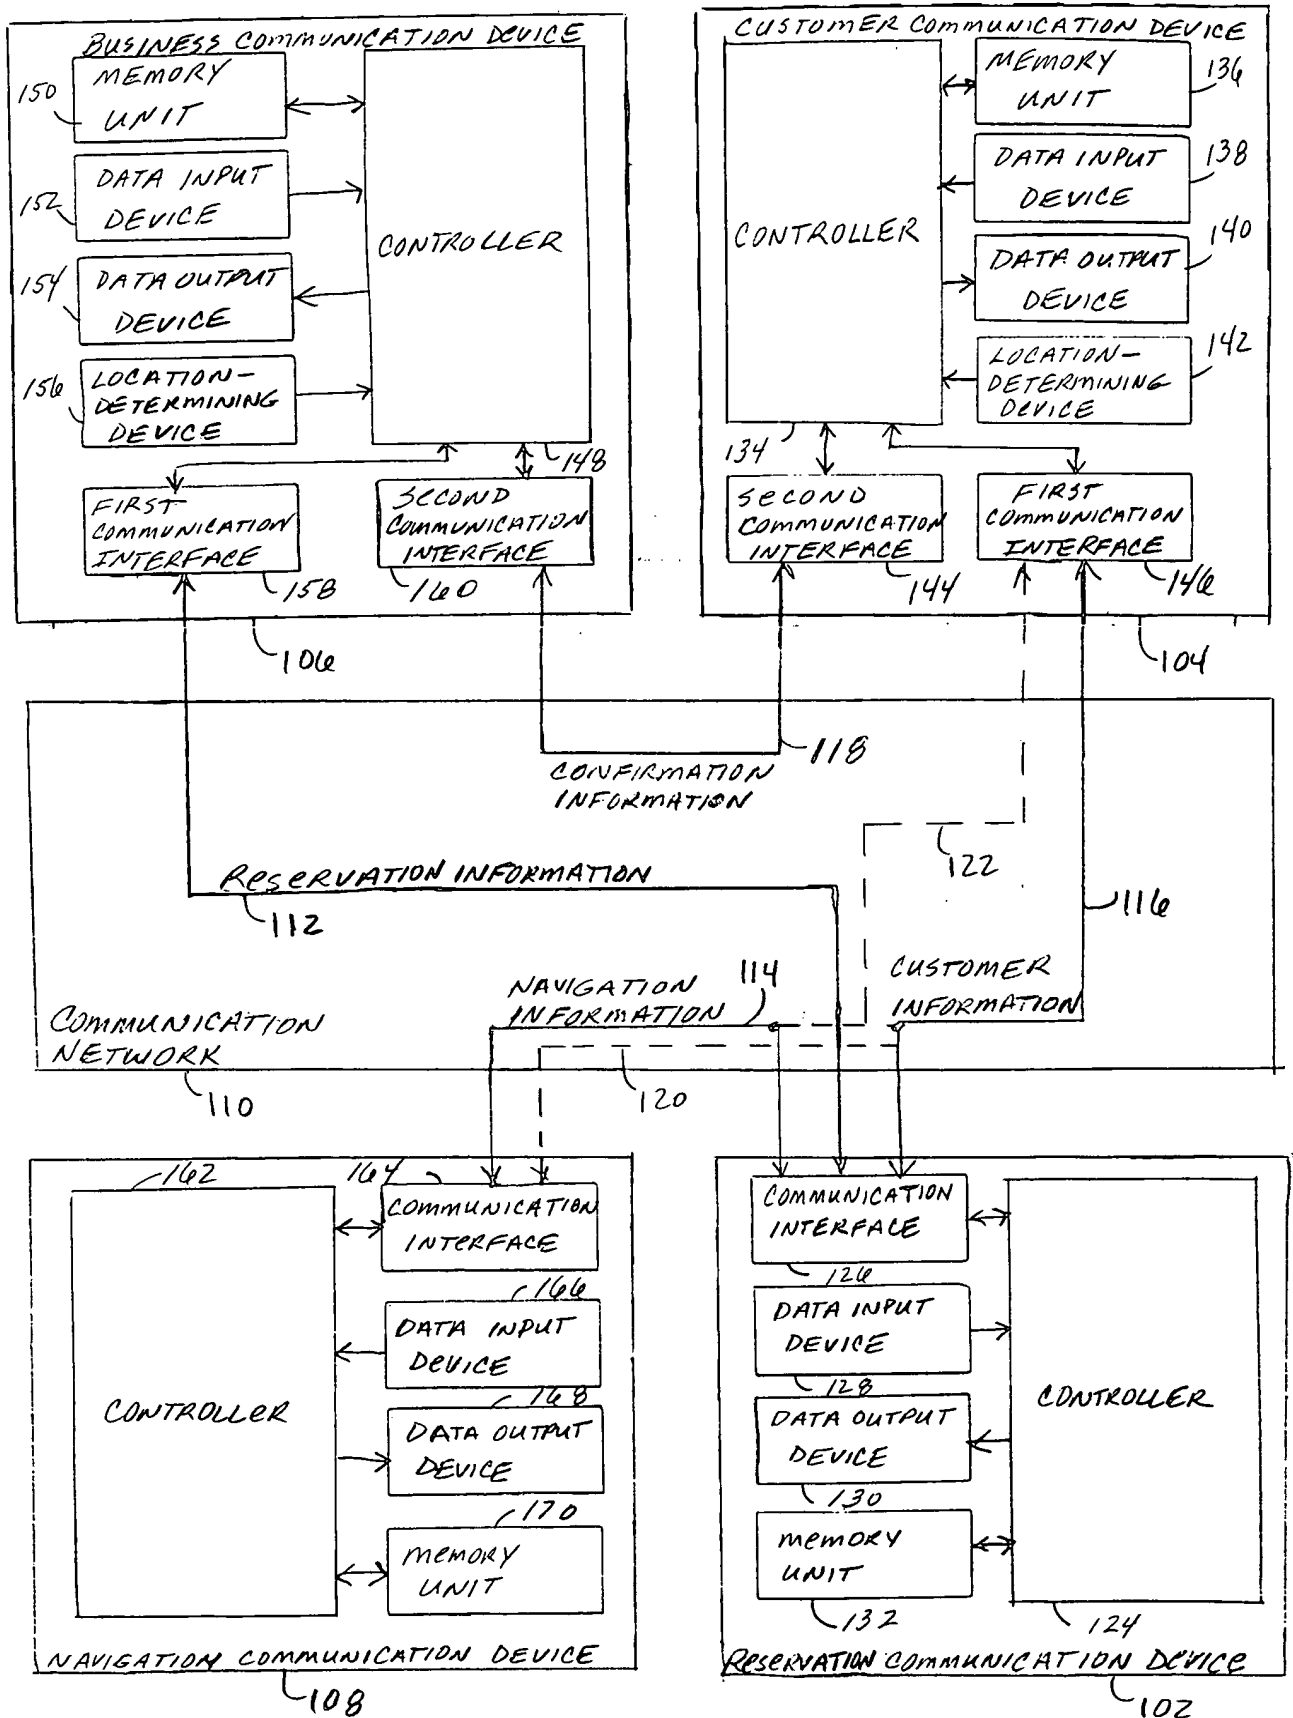 BUSINESS COMMUNICATION DEVICE
MEMORY
UNIT
150
DATA INPUT
DEVICE
152
DATA OUTPUT
DEVICE
154
LOCATION-
DETERMINING
DEVICE
156
CONTROLLER
148
FIRST
COMMUNICATION
INTERFACE
158
SECOND
COMMUNICATION
INTERFACE
160
106
CUSTOMER COMMUNICATION DEVICE
CONTROLLER
134
MEMORY
UNIT
136
DATA INPUT
DEVICE
138
DATA OUTPUT
DEVICE
140
LOCATION-
DETERMINING
DEVICE
142
SECOND
COMMUNICATION
INTERFACE
144
FIRST
COMMUNICATION
INTERFACE
146
104
118
CONFIRMATION
INFORMATION
122
RESERVATION INFORMATION
112
116
NAVIGATION
INFORMATION
114
CUSTOMER
INFORMATION
COMMUNICATION
NETWORK
110
120
162
164
COMMUNICATION
INTERFACE
166
DATA INPUT
DEVICE
168
CONTROLLER
DATA OUTPUT
DEVICE
170
MEMORY
UNIT
NAVIGATION COMMUNICATION DEVICE
108
COMMUNICATION
INTERFACE
126
DATA INPUT
DEVICE
128
DATA OUTPUT
DEVICE
130
MEMORY
UNIT
132
CONTROLLER
124
RESERVATION COMMUNICATION DEVICE
102